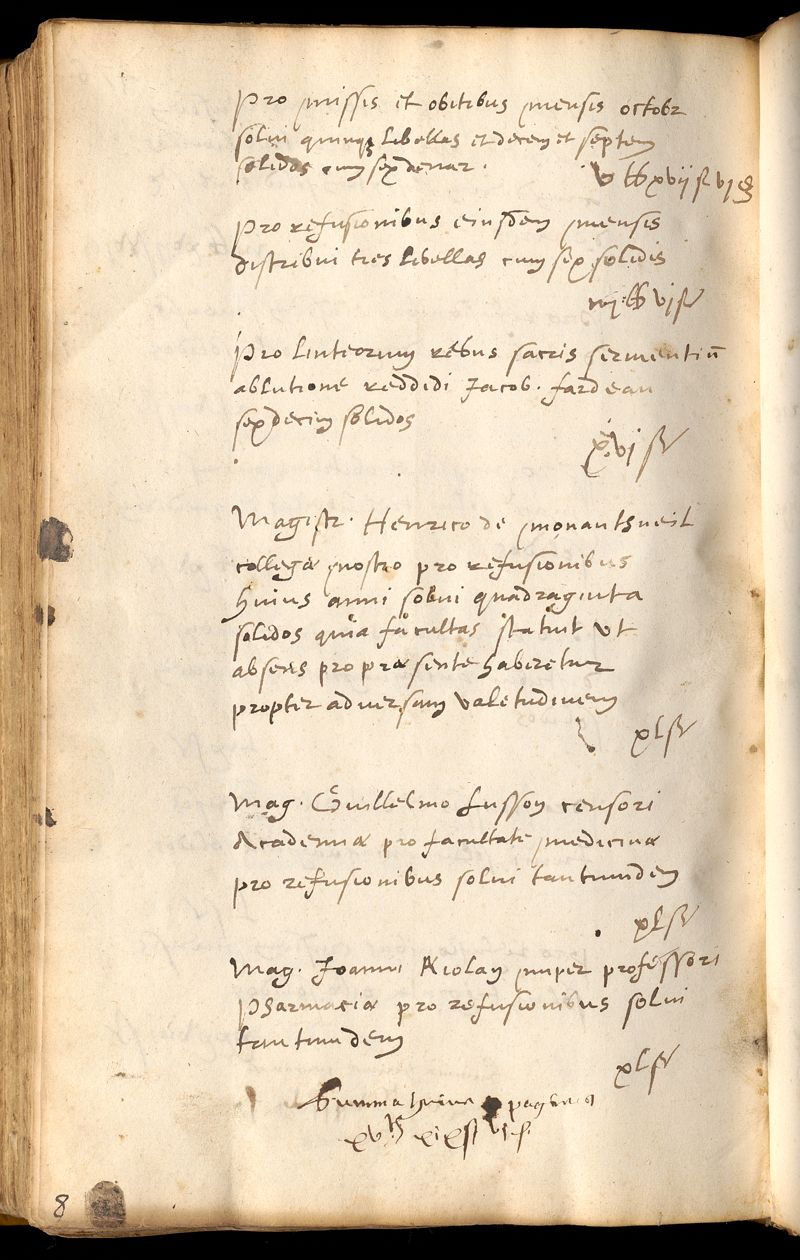 Pro missis et obitibus mensis octobr
solui quinqz libellas et decem et septem
solidos cum sex denar.
v lb xvij s vj d
Pro refusionibus eiusdem mensis
distribui tres libellas cum sex solidis
iij lb vj s
Pro linteorum rebus sacris seruientiū
ablutione reddidi Jacob. fardeau
sexdecim solidos
xvj s
Magistr. Henrico de monantheuil
collegæ nostro pro refusionibus
huius anni solui quadraginta
solidos quia facultas statuit vt
absens pro præsente haberetur
propter aduersam valetudinem
xl s
Mag. Guillelmo Lusson censori
Academiæ pro facultate medicinæ
pro refusionibus solui tantumdem
xl s
Mag. Joanni Riolan nuper professori
Pharmaciæ pro refusionibus solui
tantumdem
xl s
Summa huius paginæ
xv lb
8